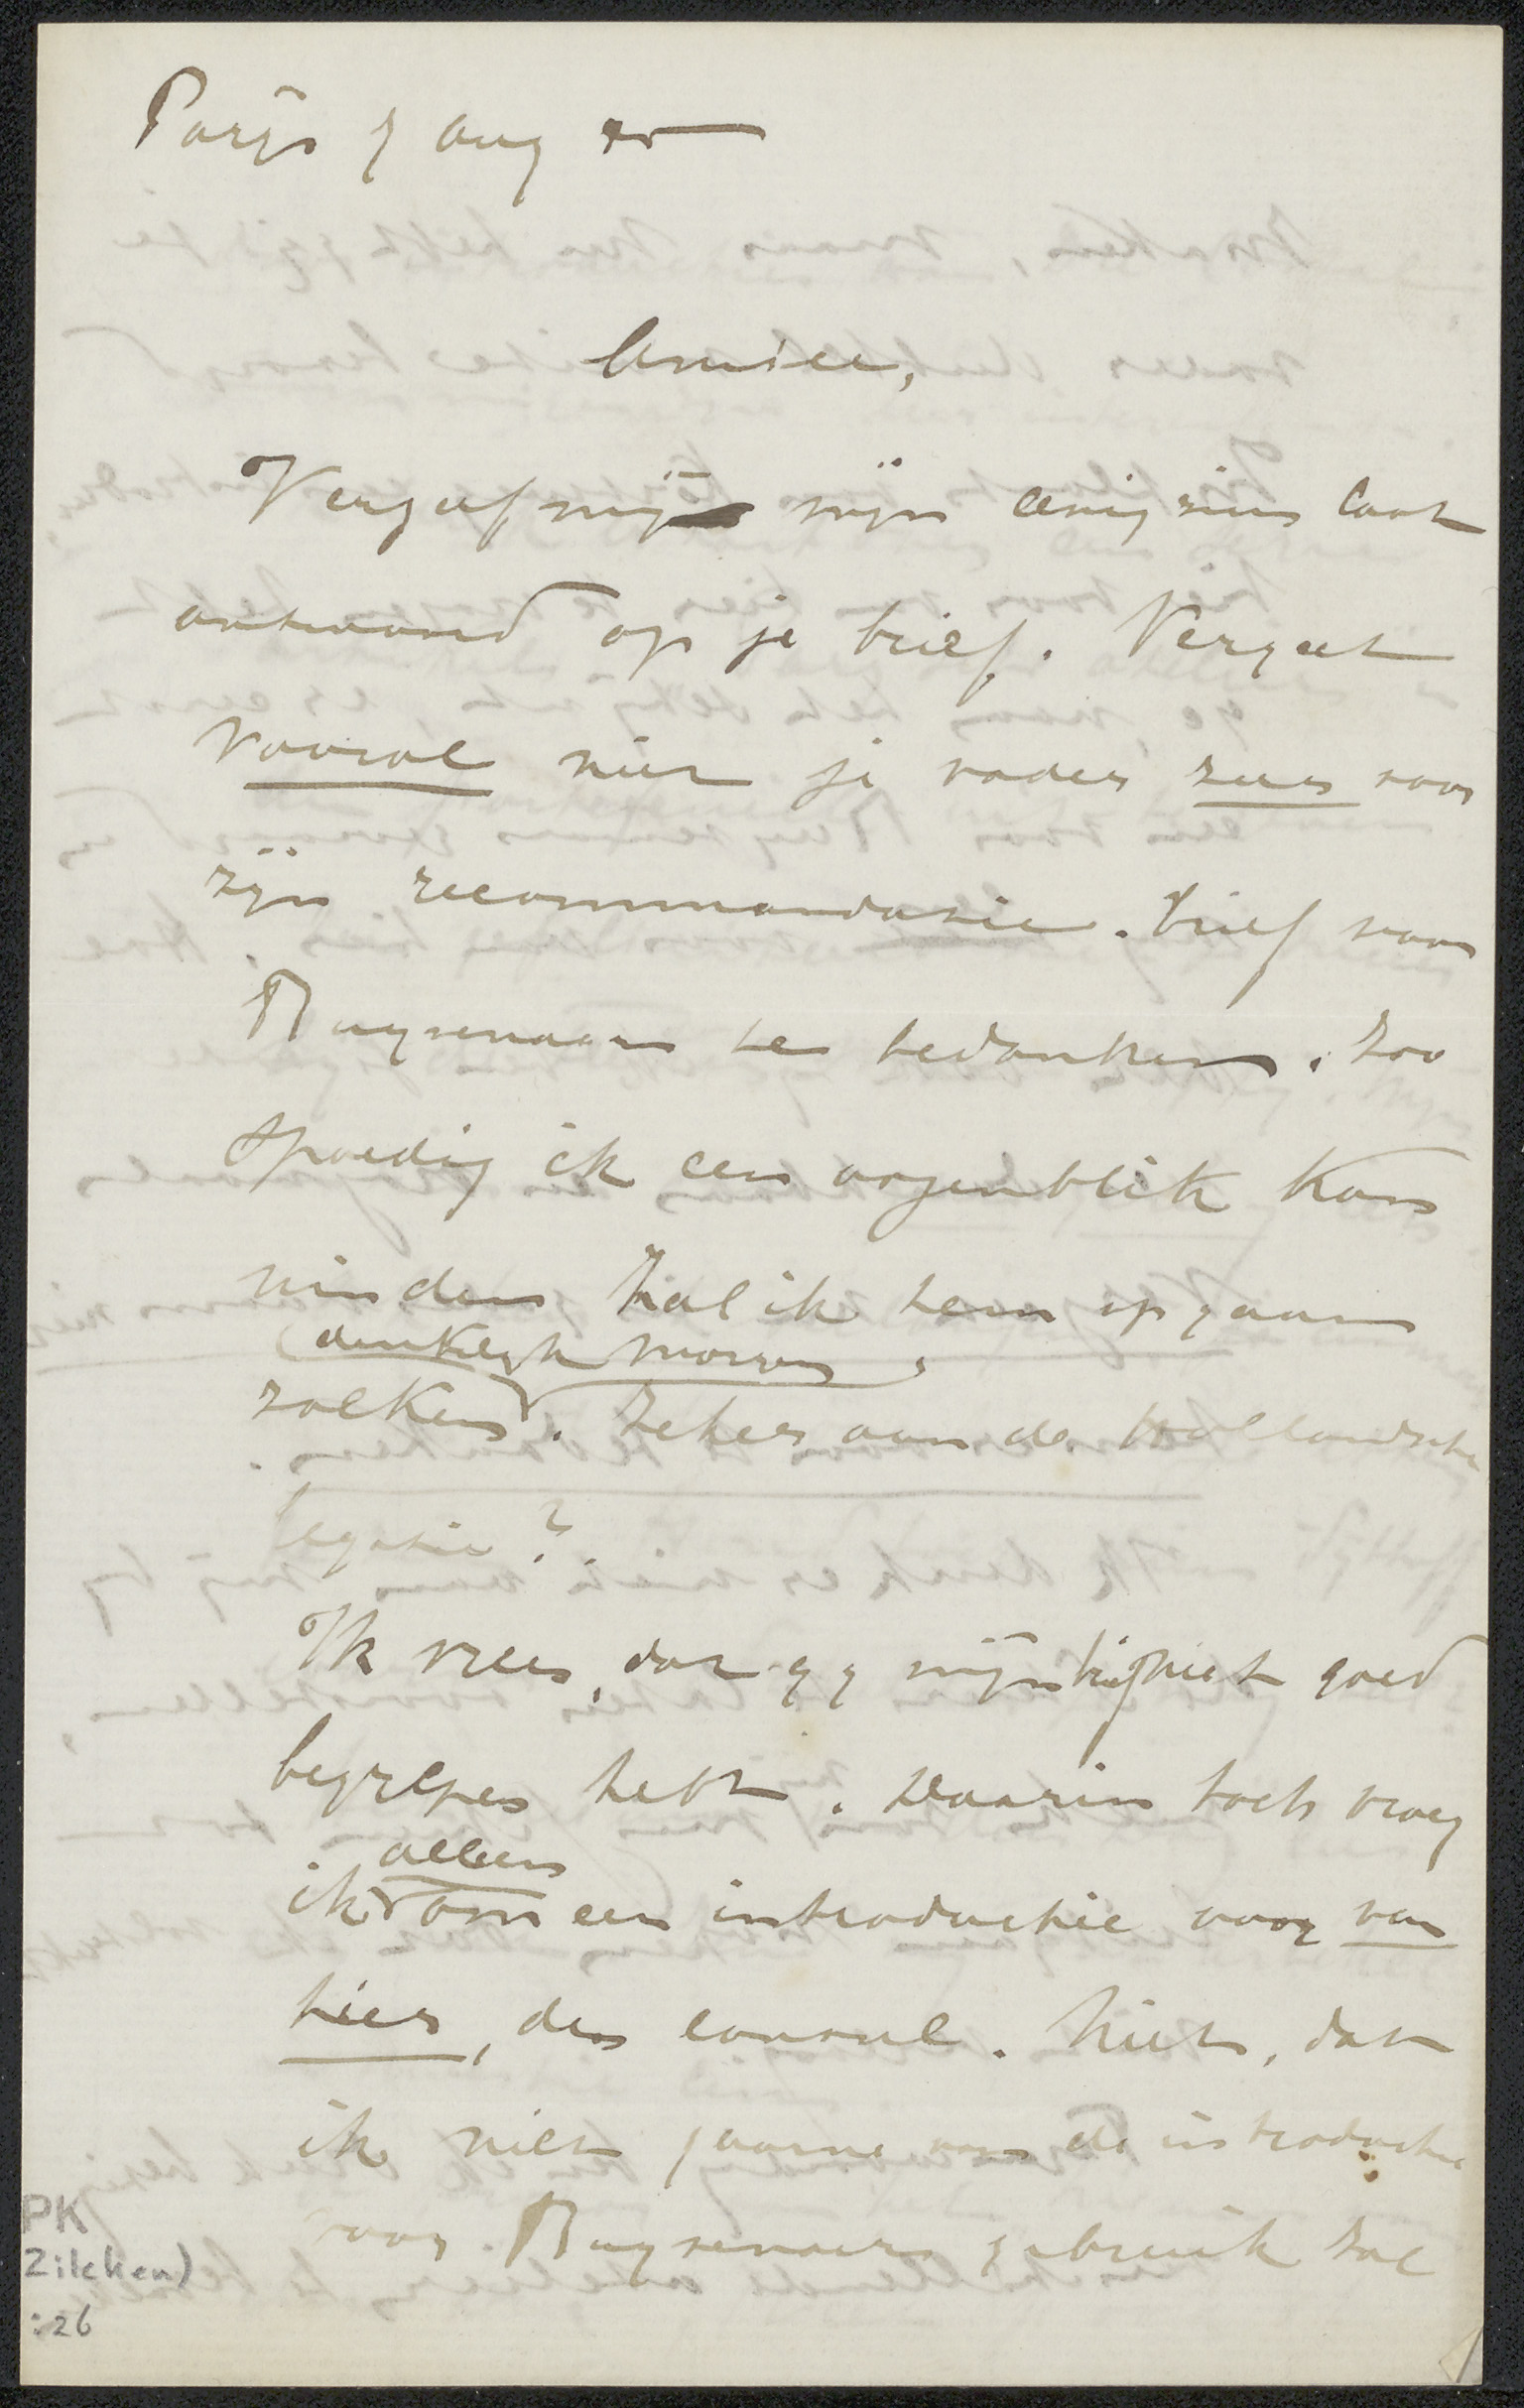 Parijs 7 aug
Amice,
Vergeef mij mijn eenigzins laat
antwoord op je brief. Vergeet
vooral niet je vader zeer voor
zijn recommandatie-brief voor
Ruysenaars te bedanken. Zoo
spoedig ik een oogenblik kan
vinden zal ik hem op gaan
denkelijk morgen
zoeken. Zeker aan de Hollandsche
legatie?
Ik vrees, dat gy mijn brief niet goed
begrepen hebt. Daarin toch vroeg
alleen
ik om een introductie voor van
hier, den consul. Niet, dat
ik niet gaarne van de introductie
voor Ruysenaers gebruik zal
PK
Zilcken)
:26